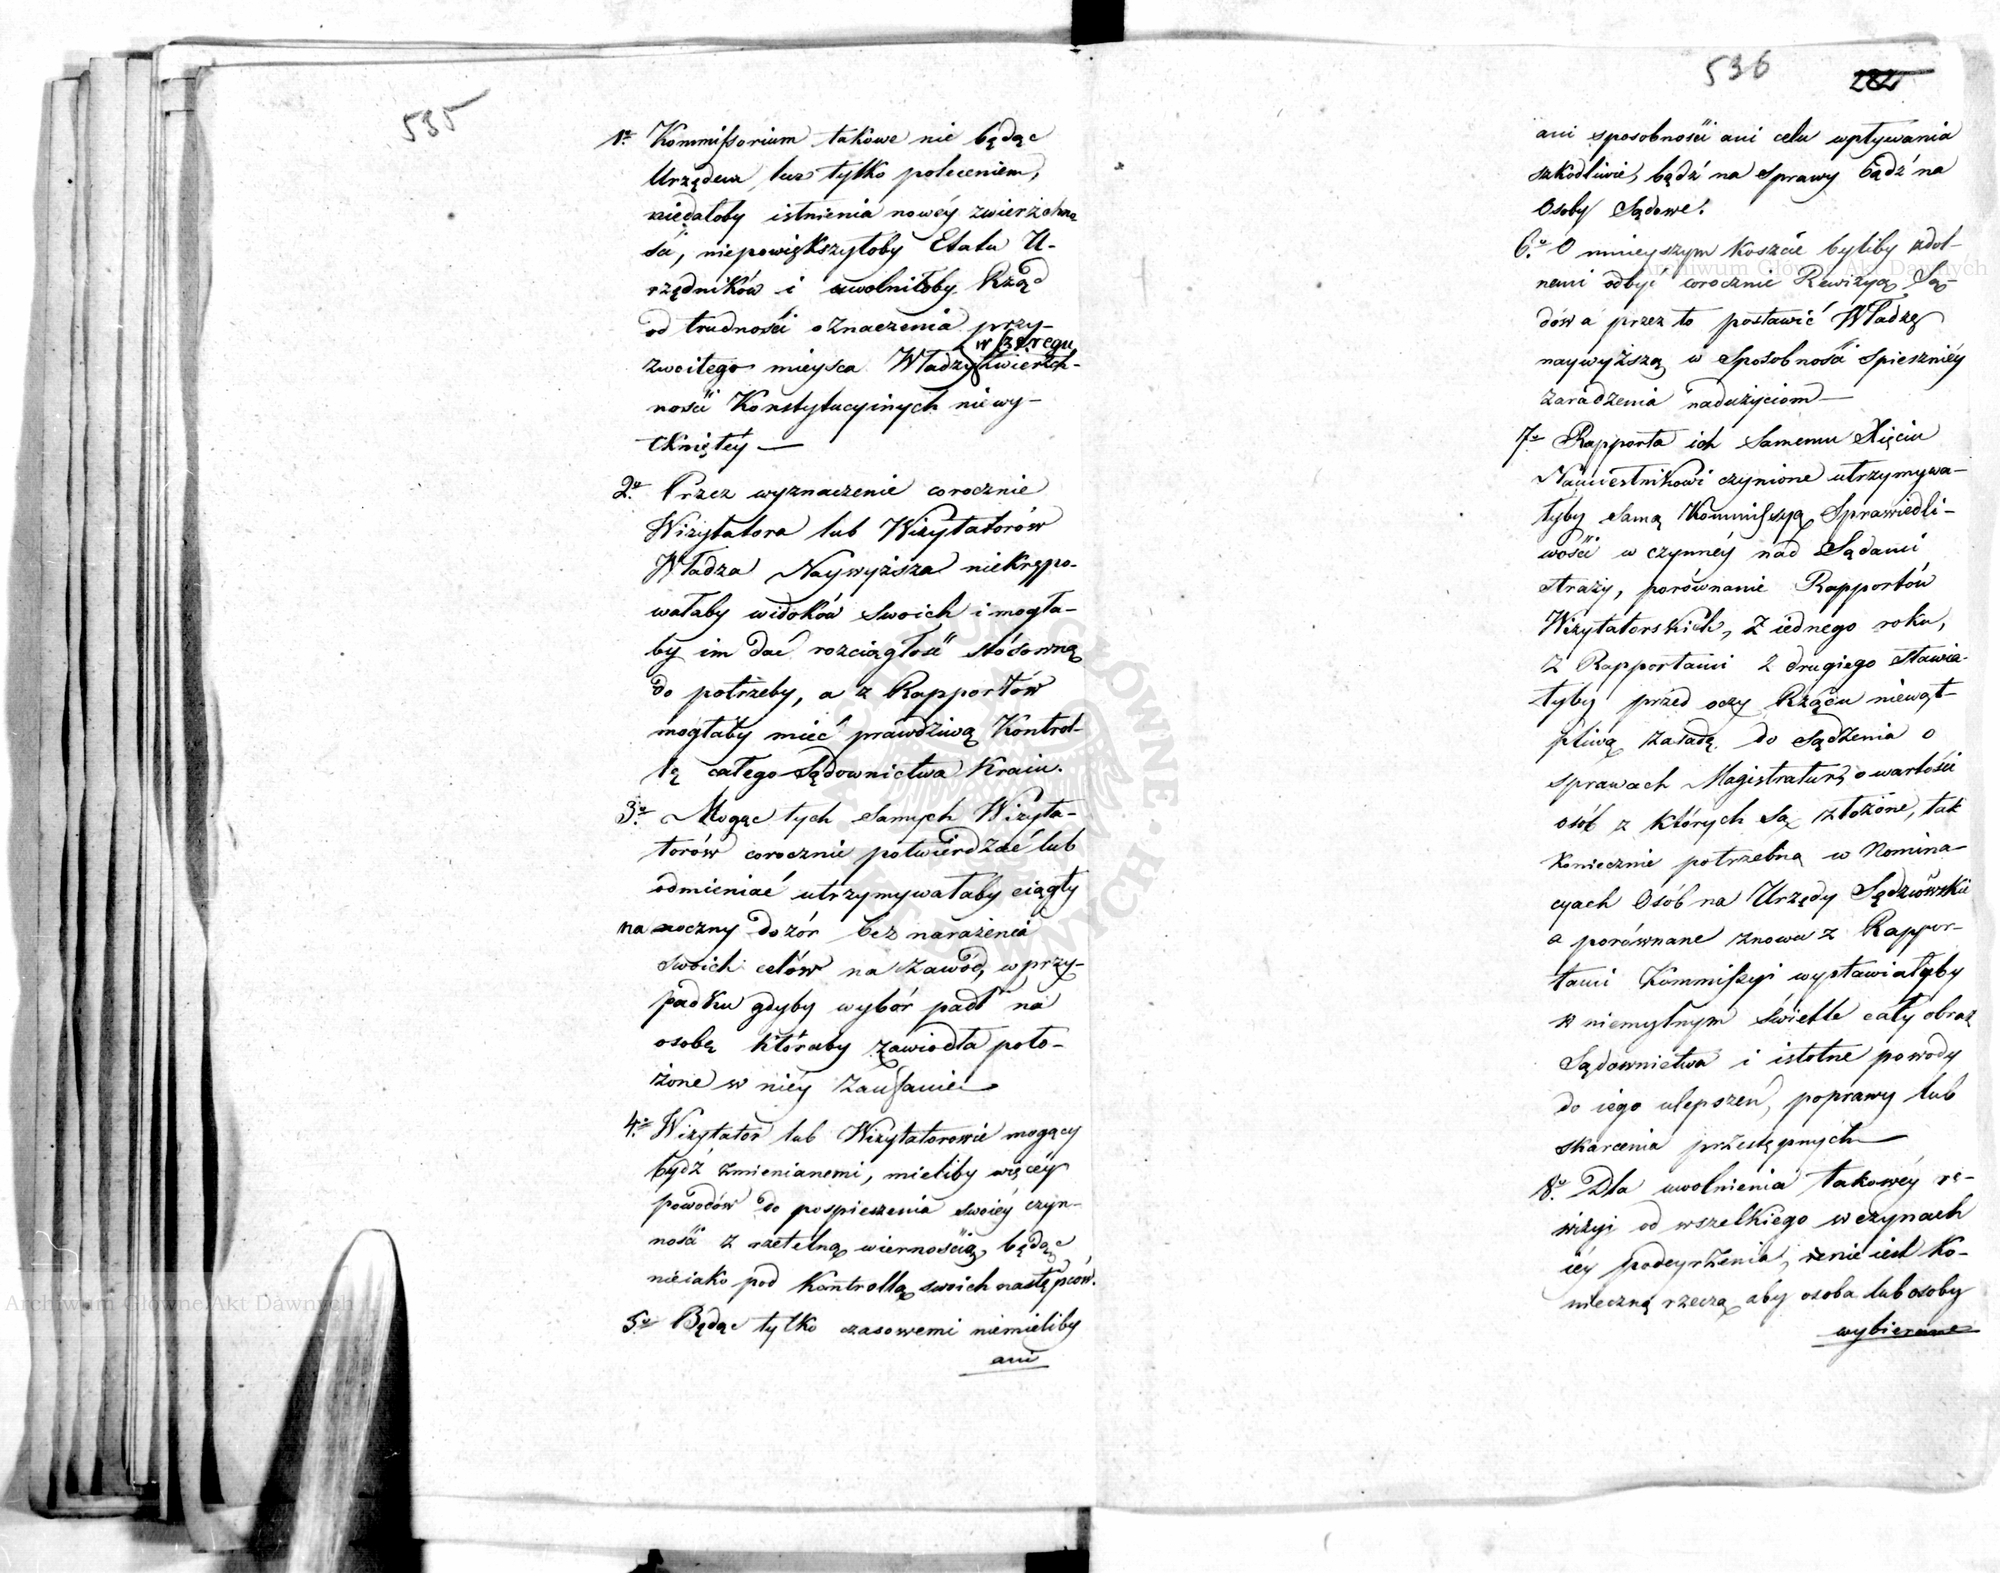 535
1º Kommissorium takowe nie będąc
Urzędem lecz tylko poleceniem,
niedałoby istnienia nowéy zwierzchno
ści, niepowiększyłoby Etatu U-
rzędników i uwolniłoby Rząd
od trudności oznaczenia przy-
w szeregu
zwoitego mieysca Władzy Zwierzch-
ności Konstytucyinych niewy-
tkniętéy —
2º Przez wyznaczenie corocznie
Wizytatora lub Wizytatorów
Władza Naywyższa niekrępo-
wałaby widoków swoich i mogła-
by im dać rozciągłość stósowną
do potrzeby, a z Rapportów
mogłaby mieć prawdziwą Kontrol-
lę całego Sądownictwa Kraiu.
3º Mogąc tych samych Wizyta-
torów corocznie potwierdzać lub
odmieniać utrzymywałaby ciągły
naoczny dozór bez narażenia
swoich celów na zawód, w przy-
padku gdyby wybór padł na
osobę któraby zawiodła poło-
żone w niéy zaufanie
4º Wizytator lub Wizytatorowie mogący
bydź zmienianemi, mieliby więcéy
powodów do pospieszenia swoiéy czyn-
ności z rzetelną wiernością, będąc
nieiako pod Kontrollą swoich następców.
5º Będąc tylko czasowemi niemieliby
ani
536
282
ani sposobności ani celu wpływania
szkodliwie, bądź na Sprawy bądź na
Osoby Sądowe.
6º O mnieyszym Koszcie byliby zdol-
nemi odbyć corocznie Rewizyą Są-
dów a przez to postawić Władzę
naywyższą w sposobności spieszniéy
zaradzenia nadużyciom —
7º Rapporta ich Samemu Xięciu
Namiestnikowi czynione utrzymywa-
łyby samą Kommissyą Sprawiedli-
wości w czynnéy nad Sądami
straży, porównanie Rapportów
Wizytatorskich, z iednego roku,
z Rapportami z drugiego stawia-
łyby przed oczy Rządu niewąt-
pliwą zasadę do sądzenia o
sprawach Magistratur, o wartości
osób z których są złożone, tak
koniecznie potrzebną w Nomina-
cyach Osób na Urzędy Sędziowskie
a porównane znowu z Rappor-
tami Kommissyi wystawiałyby
w niemylnym świetle cały obraz
Sądownictwa i istotne powody
do iego ulepszeń, poprawy lub
skarcenia przestępnych —
8º Dla uwolnienia takowéy re-
wizyi od wszelkiego w czynach
iéy podeyrzenia, nie iest ko-
nieczną rzeczą aby osoba lub osoby
wybierane
Archiwum Główne Akt Dawnych
Archiwum Główne Akt Dawnych